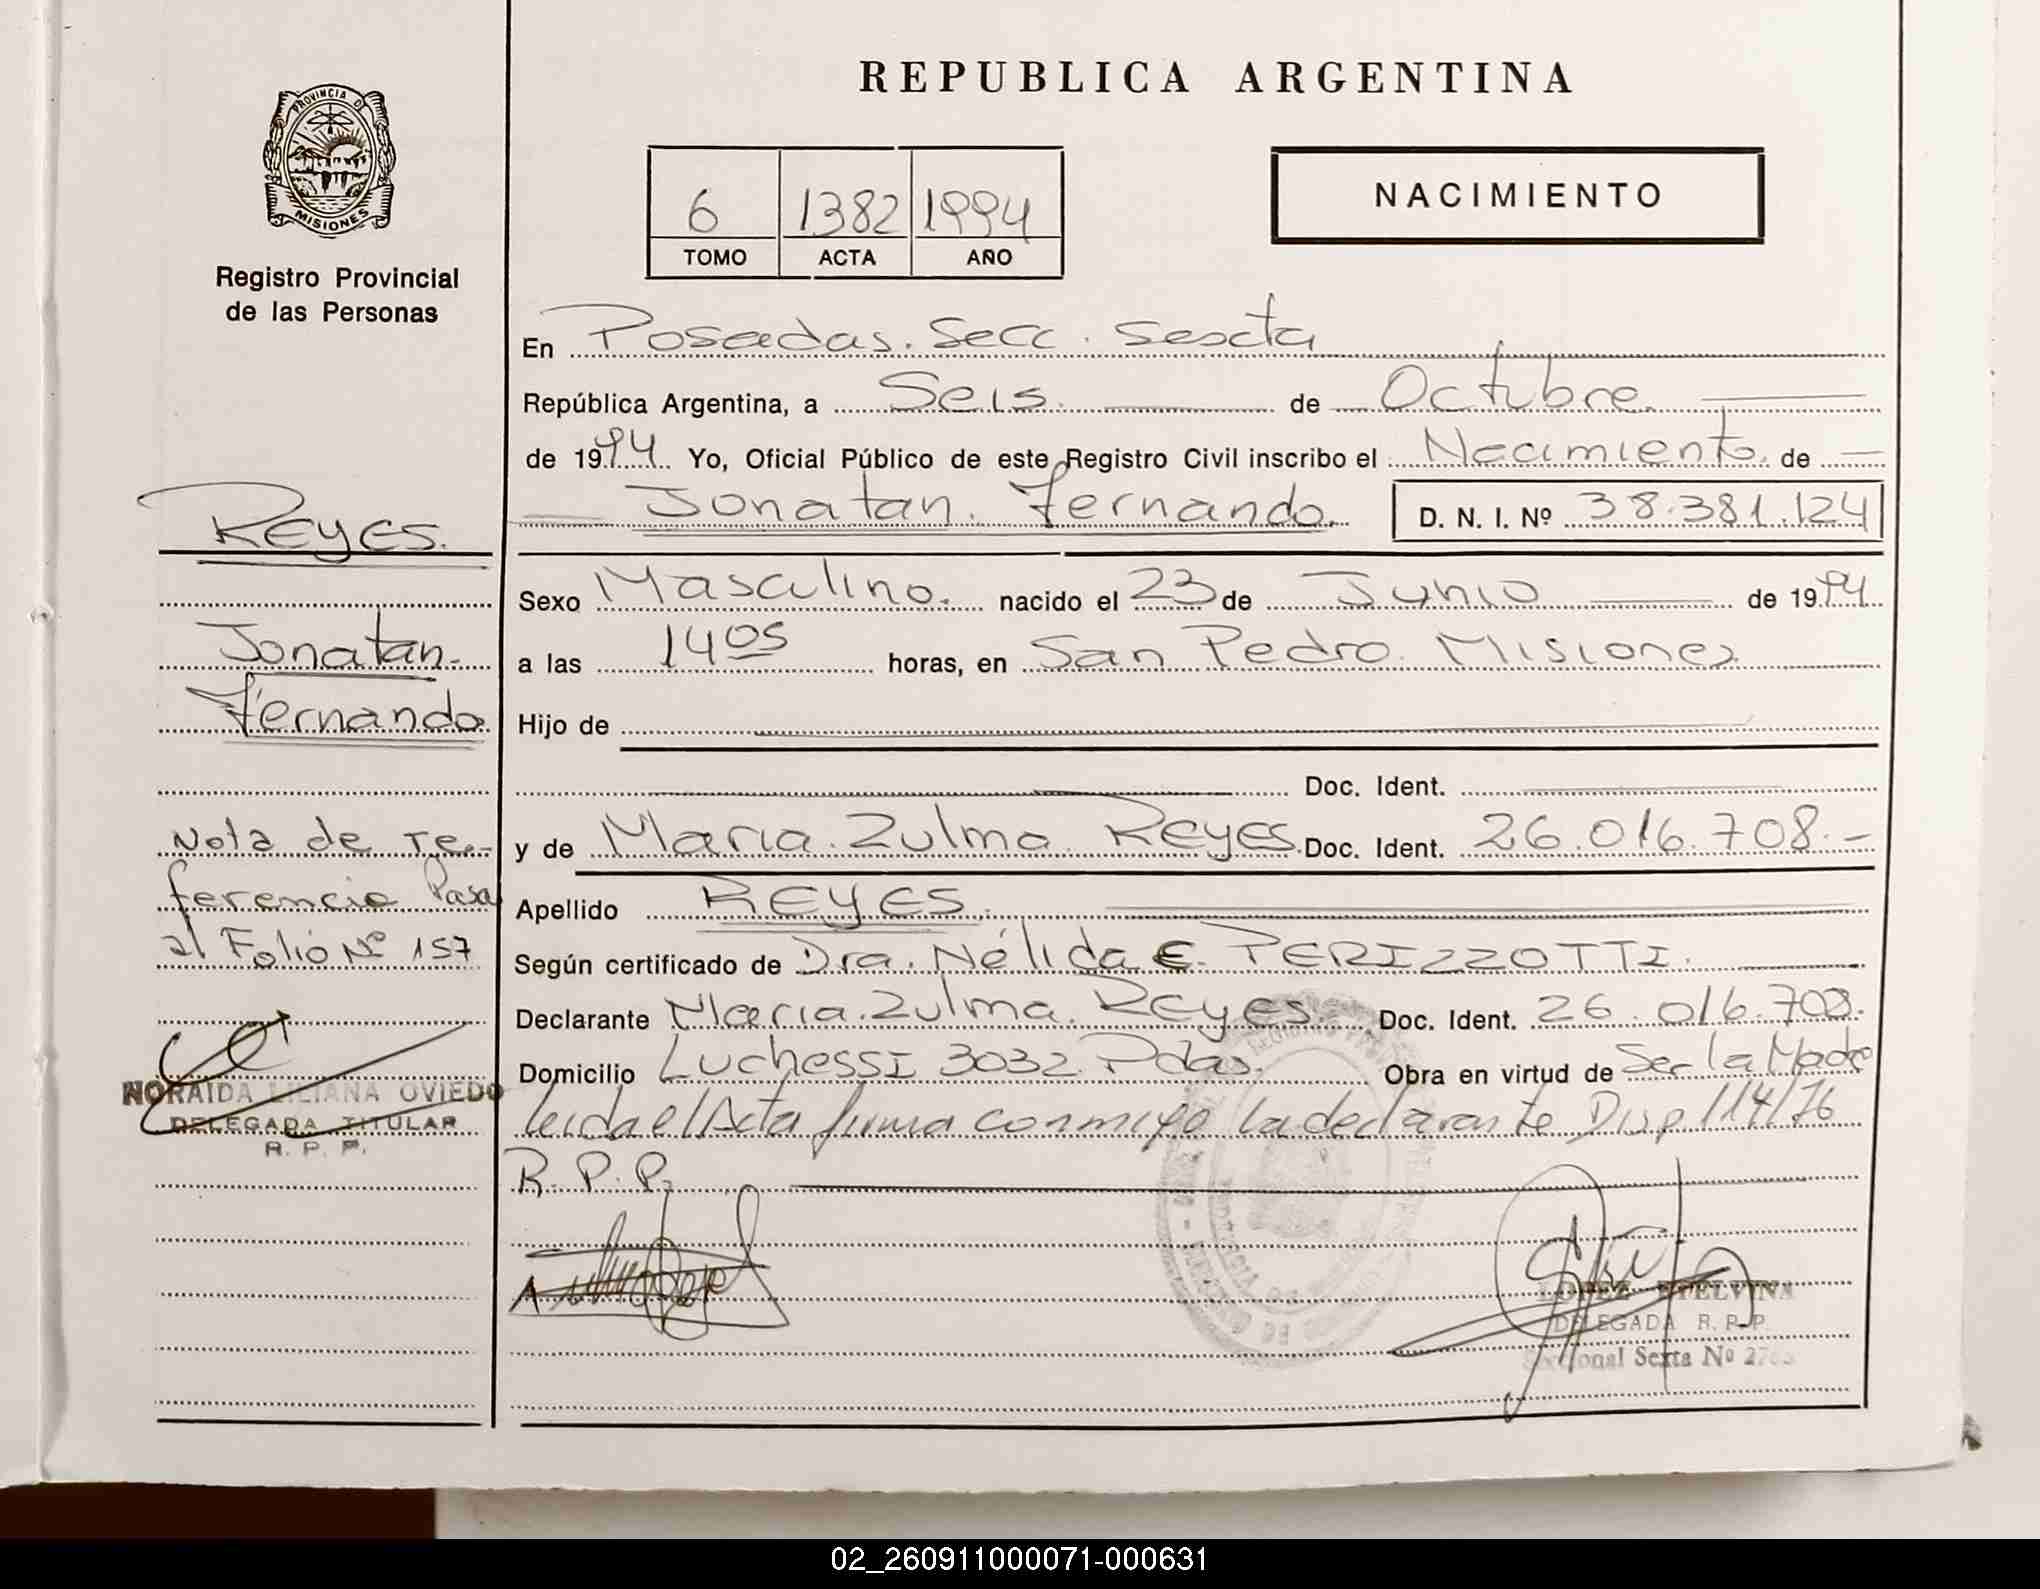 REPUBLICA ARGENTINA
PROVINCIA D
MISIONES
Registro Provincial
de las Personas
6 1382 1994
TOMO ACTA AÑO
NACIMIENTO
En Posadas. Secc. Sexta
República Argentina, a Seis. de Octubre.
de 1994 Yo, Oficial Público de este Registro Civil inscribo el Nacimiento. de
Jonatan. Fernando. D. N. I. Nº 38.381.124
Sexo Masculino. nacido el 23 de Junio de 1994
a las 14 05 horas, en San Pedro. Misiones
Hijo de
Doc. Ident.
y de Maria. Zulma. Reyes. Doc. Ident. 26.016.708.-
Apellido REYES.
Según certificado de Dra. Nélida E. PERIZZOTTI.
Declarante Maria. Zulma. Reyes. Doc. Ident. 26.016.708.
Domicilio Luchessi 3032. Pdas. Obra en virtud de Ser la Madre
leida el Acta firma conmigo la declarante Disp. 114/76
R.P.P.
REYES.
Jonatan.
Fernando.
Nota de re-
ferencia Pasa
al Folio Nº 157
NORAIDA LILIANA OVIEDO
DELEGADA TITULAR
R. P. P.
LOPEZ ETELVINA
DELEGADA R. P. P.
Seccional Sexta Nº
02_260911000071-000631